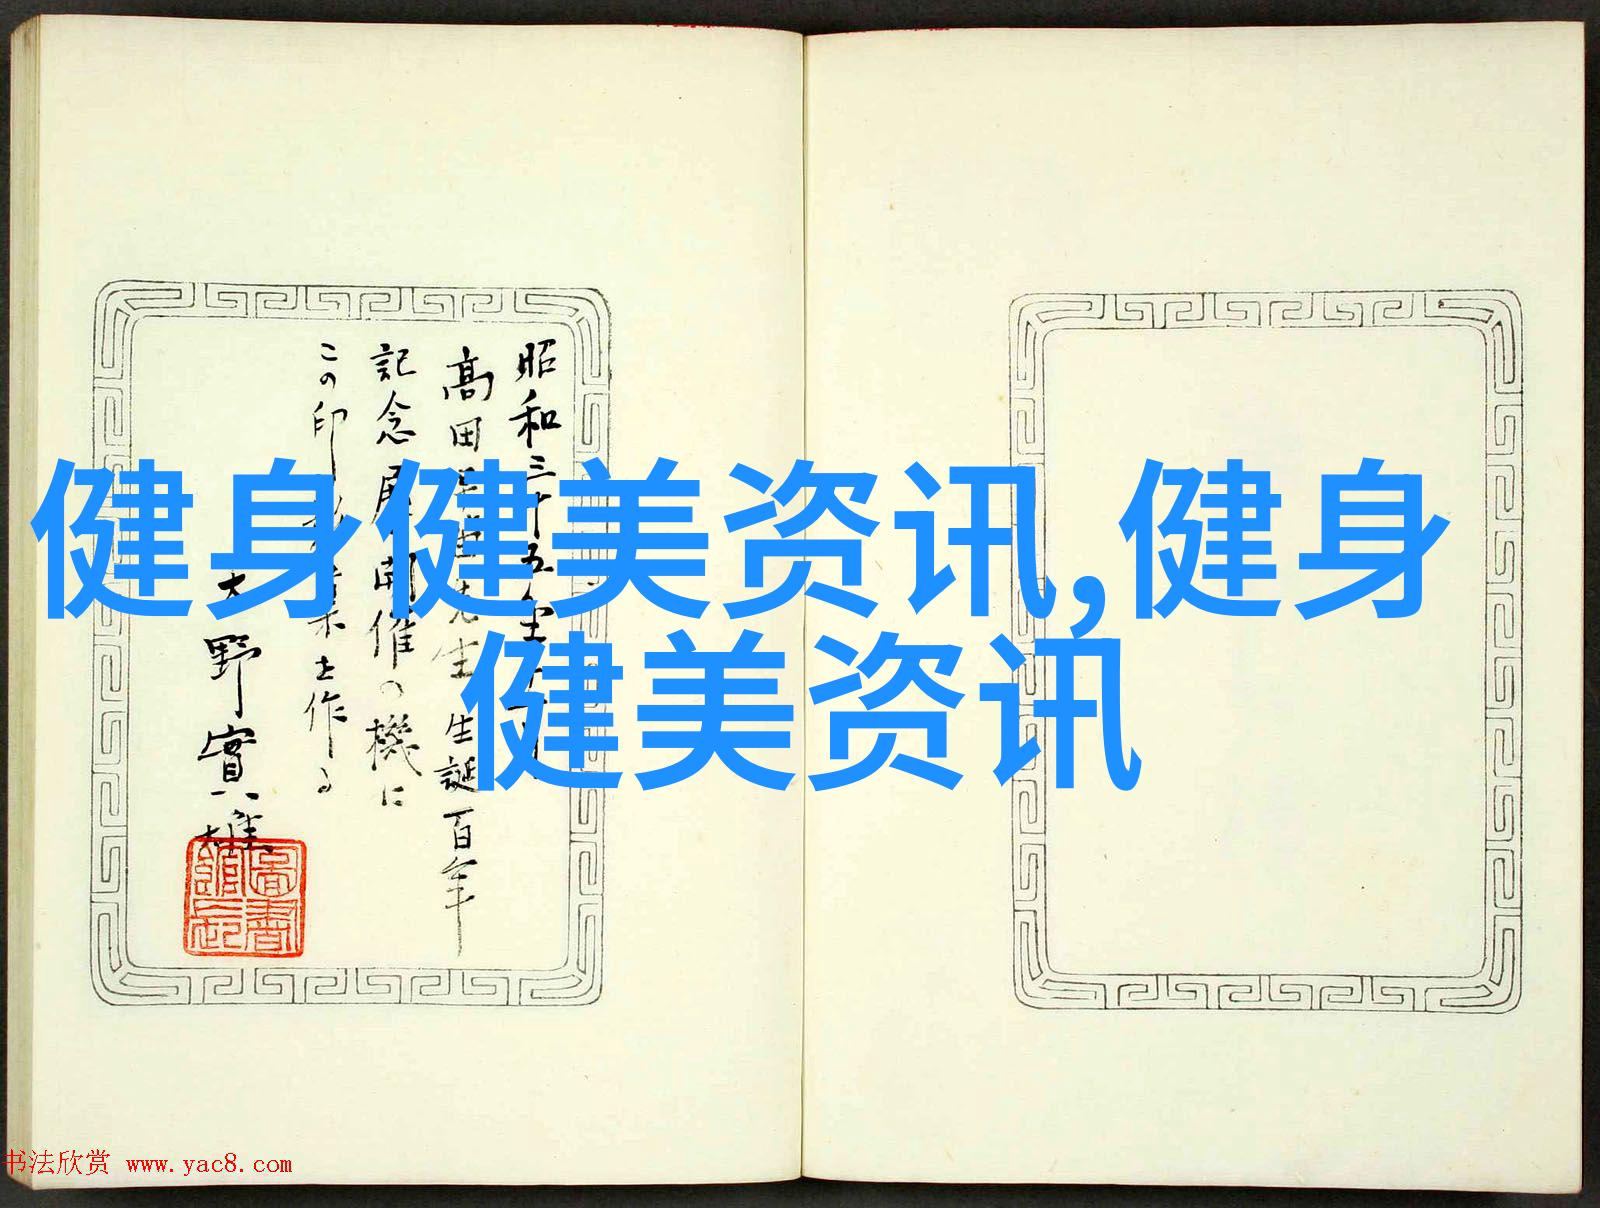 健身健美资讯,健身
健美资讯
昭和三十五年十一月
高田早苗先生生誕百年
記念展開催の機に
この印
士作る
大野實雄
圖書館長
书法欣赏 www.yac8.com